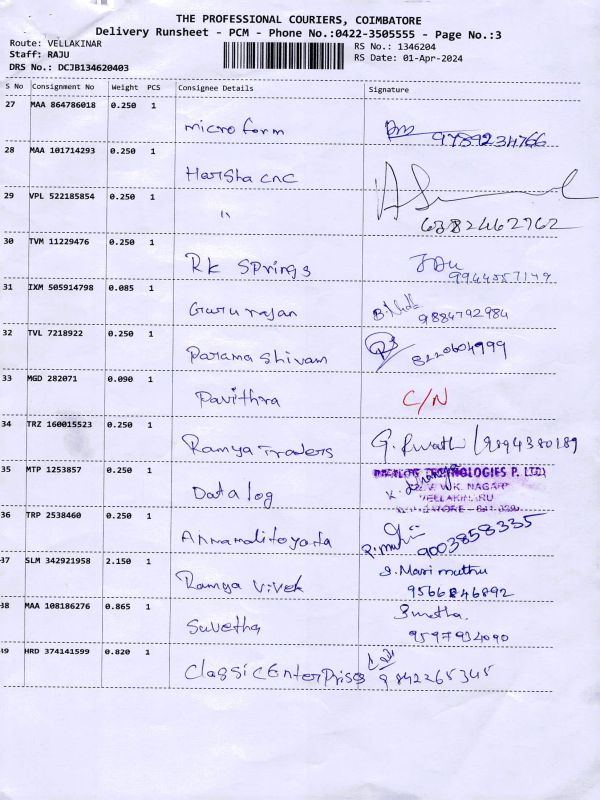 THE PROFESSIONAL COURIERS, COIMBATORE
Delivery Runsheet - PCM - Phone No.:0422-3505555 - Page No.:3
Route: VELLAKINAR
RS No.: 1346204
Staff: RAJU
RS Date: 01-Apr-2024
DRS No.: DCJB134620403
S No Consignment No Weight PCS Consignee Details Signature
27 MAA 864786018 0.250 1
micro form 9789234766
28 MAA 101714293 0.250 1
Harsha cnc
29 VPL 522185854 0.250 1
" 6382462762
30 TVM 11229476 0.250 1
RK Springs 9944557149
31 IXM 505914798 0.085 1
Gururajan 9884792984
32 TVL 7218922 0.250 1
Parama Shivam 8220604999
33 MGD 282071 0.090 1
Pavithra C/N
34 TRZ 160015523 0.250 1
Ramya Traders 9894380189
35 MTP 1253857 0.250 1
Datalog
TECHNOLOGIES P. LTD.
W.K. NAGAR
VELLAKINARU
36 TRP 2538460 0.250 1
Annamalitoyata 9003858335
37 SLM 342921958 2.150 1
Ramya Vivek S. Mari muthu
9566846892
38 MAA 108186276 0.865 1
Suvetha 9597934090
39 HRD 374141599 0.820 1
Classic Enterprises 9842265345